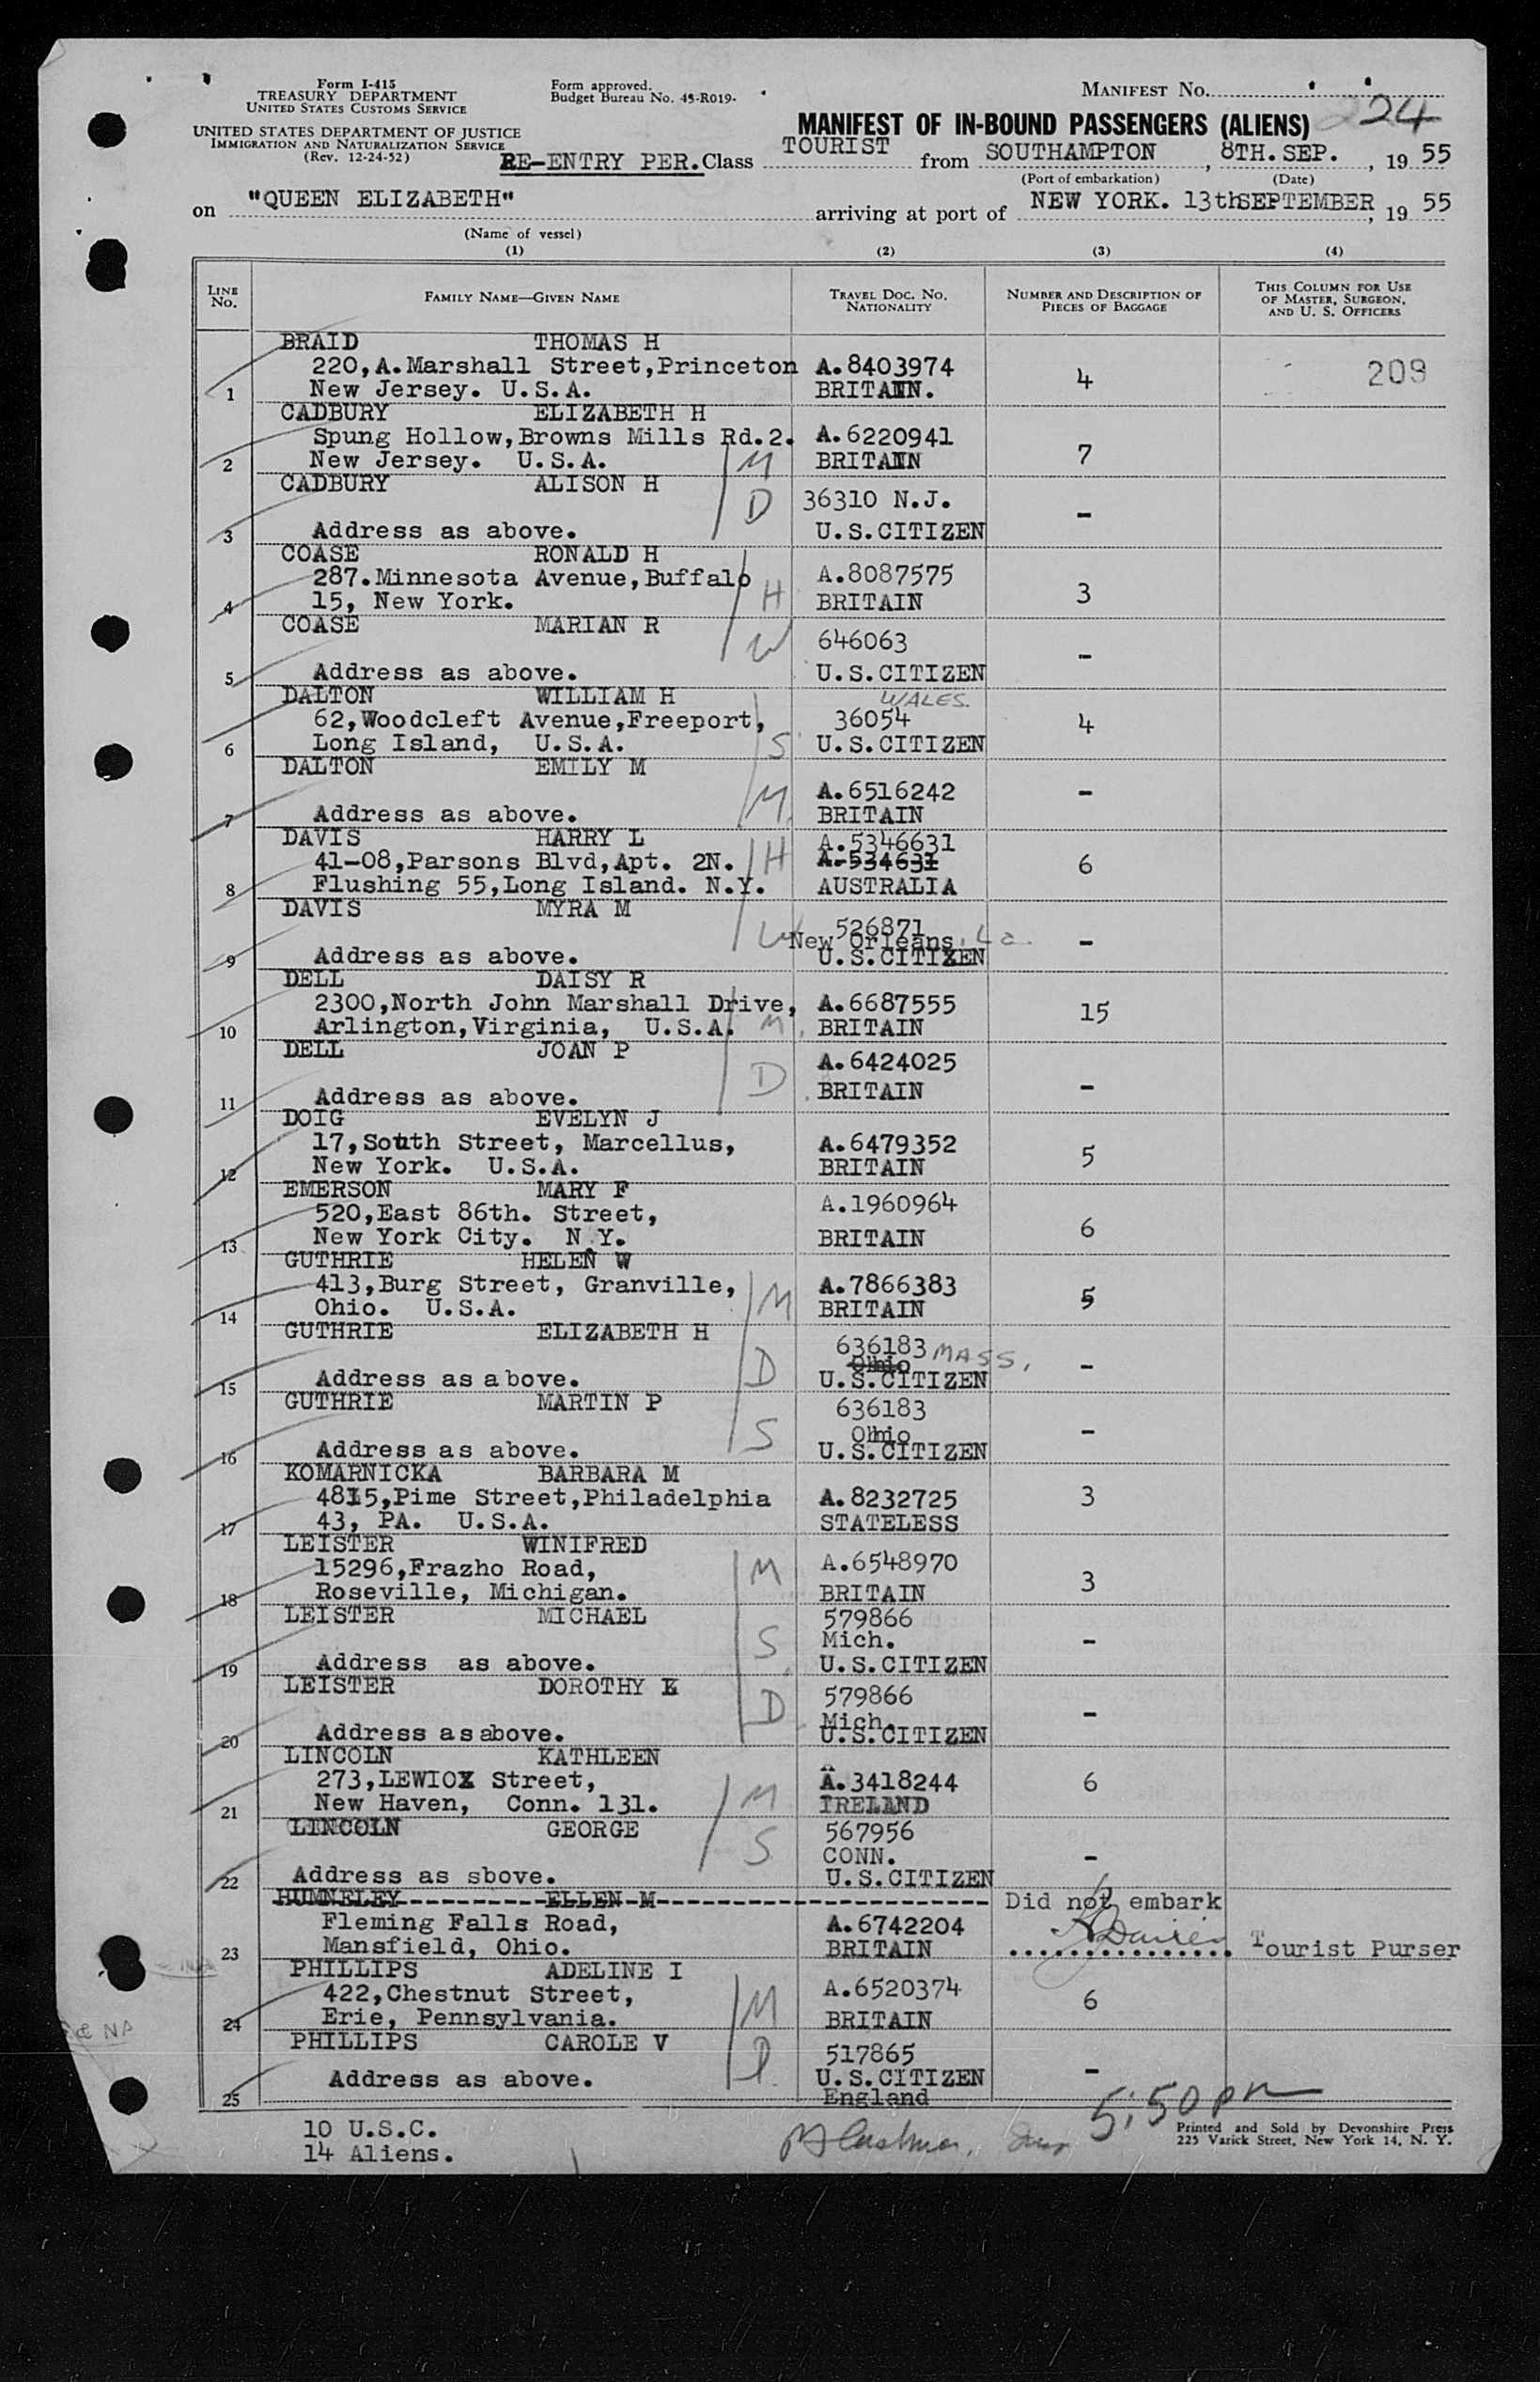 Form I-415
TREASURY DEPARTMENT
UNITED STATES CUSTOMS SERVICE
Form approved.
Budget Bureau No. 43-R019-
MANIFEST NO.
UNITED STATES DEPARTMENT OF JUSTICE
IMMIGRATION AND NATURALIZATION SERVICE
(Rev. 12-24-52)
MANIFEST OF IN-BOUND PASSENGERS (ALIENS) 224
RE-ENTRY PER. Class TOURIST from SOUTHAMPTON, 8TH. SEP., 19 55
(Port of embarkation) (Date)
on "QUEEN ELIZABETH" arriving at port of NEW YORK. 13thSEPTEMBER, 19 55
(Name of vessel)
(1) (2) (3) (4)
LINE NO. FAMILY NAME—GIVEN NAME TRAVEL DOC. NO. NATIONALITY NUMBER AND DESCRIPTION OF PIECES OF BAGGAGE THIS COLUMN FOR USE OF MASTER, SURGEON, AND U. S. OFFICERS
BRAID THOMAS H
220,A.Marshall Street,Princeton A.8403974 4 209
1 New Jersey. U.S.A. BRITAIN.
CADBURY ELIZABETH H
Spung Hollow,Browns Mills Rd.2. A.6220941 7
2 New Jersey. U.S.A. M BRITAIN
CADBURY ALISON H
D 36310 N.J. -
3 Address as above. U.S.CITIZEN
COASE RONALD H
287.Minnesota Avenue,Buffalo A.8087575 3
4 15, New York. H BRITAIN
COASE MARIAN R
W 646063 -
5 Address as above. U.S.CITIZEN
DALTON WILLIAM H WALES.
62,Woodcleft Avenue,Freeport, 36054 4
6 Long Island, U.S.A. S U.S.CITIZEN
DALTON EMILY M
M. A.6516242 -
7 Address as above. BRITAIN
DAVIS HARRY L A.5346631
41-08,Parsons Blvd,Apt. 2N. H A-534631 6
8 Flushing 55,Long Island. N.Y. AUSTRALIA
DAVIS MYRA M
526871
W New Orleans, La. -
9 Address as above. U.S.CITIZEN
DELL DAISY R
2300,North John Marshall Drive, A.6687555 15
10 Arlington,Virginia, U.S.A. M. BRITAIN
DELL JOAN P A.6424025
D BRITAIN -
11 Address as above.
DOIG EVELYN J
17,South Street, Marcellus, A.6479352 5
12 New York. U.S.A. BRITAIN
EMERSON MARY F
520,East 86th. Street, A.1960964 6
13 New York City. N.Y. BRITAIN
GUTHRIE HELEN W
413,Burg Street, Granville, A.7866383 5
14 Ohio. U.S.A. M BRITAIN
GUTHRIE ELIZABETH H
636183 MASS.
D Ohio -
15 Address as above. U.S.CITIZEN
GUTHRIE MARTIN P 636183
S Ohio -
16 Address as above. U.S.CITIZEN
KOMARNICKA BARBARA M
4815,Pime Street,Philadelphia A.8232725 3
17 43, PA. U.S.A. STATELESS
LEISTER WINIFRED
15296,Frazho Road, M A.6548970 3
18 Roseville, Michigan. BRITAIN
LEISTER MICHAEL 579866
S Mich. -
19 Address as above. U.S.CITIZEN
LEISTER DOROTHY E 579866
D Mich. -
20 Address as above. U.S.CITIZEN
LINCOLN KATHLEEN
273,LEWIOX Street, A.3418244 6
21 New Haven, Conn. 131. M IRELAND
LINCOLN GEORGE 567956
S CONN. -
22 Address as sbove. U.S.CITIZEN
HUMNELEY----------ELLEN-M-------------------- Did not embark
Fleming Falls Road, A.6742204
23 Mansfield, Ohio. BRITAIN Tourist Purser
PHILLIPS ADELINE I
422,Chestnut Street, M A.6520374 6
24 Erie, Pennsylvania. BRITAIN
NA
PHILLIPS CAROLE V
D. 517865 -
Address as above. U.S.CITIZEN
25 England
5:50 pm
10 U.S.C.
14 Aliens.
Printed and Sold by Devonshire Press
225 Varick Street, New York 14, N. Y.